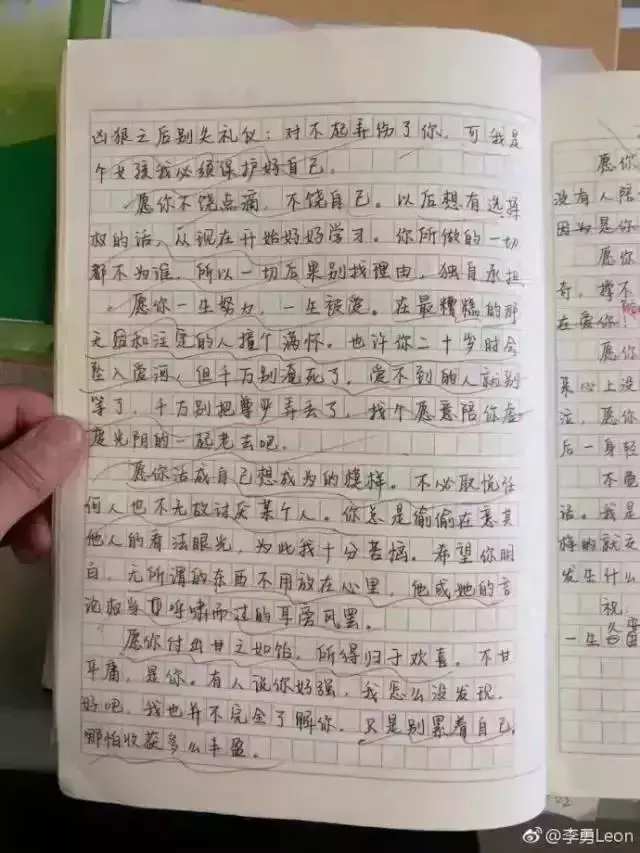 凶狠之后别失礼仪：对不起弄伤了你，可我是
个女孩我必须保护好自己。
愿你不饶点滴，不饶自己。以后想有选择
权的话，从现在开始好好学习。你所做的一切
都不为谁，所以一切后果别找理由，独自承担
愿你一生努力，一生被爱。在最糟糕的那
天和注定的人撞个满怀。也许你二十岁时会
坠入爱河，但千万别淹死了，爱不到的人就别
等了，千万别把尊严弄丢了，找个愿意陪你虚
度光阴的一起老去吧。
愿你活成自己想成为的模样。不必取悦任
何人也不无故讨厌某个人。你总是偷偷在意其
他人的看法眼光，为此我十分苦恼。希望你明
白，无所谓的东西不用放在心里，他或她的言
论权当是呼啸而过的耳旁风罢。
愿你付出甘之如饴，所得归于欢喜。不甘
平庸，是你。有人说你好强，我怎么没发现，
好吧，我也并不完全了解你，只是别累着自己，
哪怕收获多么丰盈。
愿你
没有人陪
因为是你
愿你
奇，撑不
在爱你
愿你
某心上没
泣，愿你
后一身轻
不要
话。我是
发生什么
祝
一生
@李勇Leon